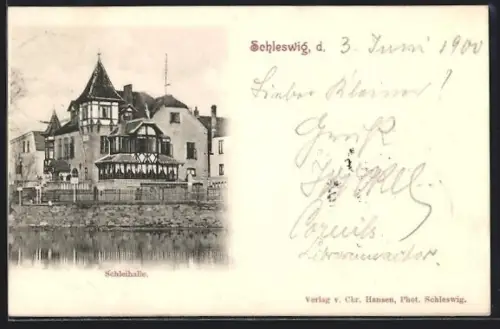 Schleswig, d. 3. Juni 1900
Lieber Kleiner!
Gruß
Schleihalle.
Verlag v. Chr. Hansen, Phot. Schleswig.